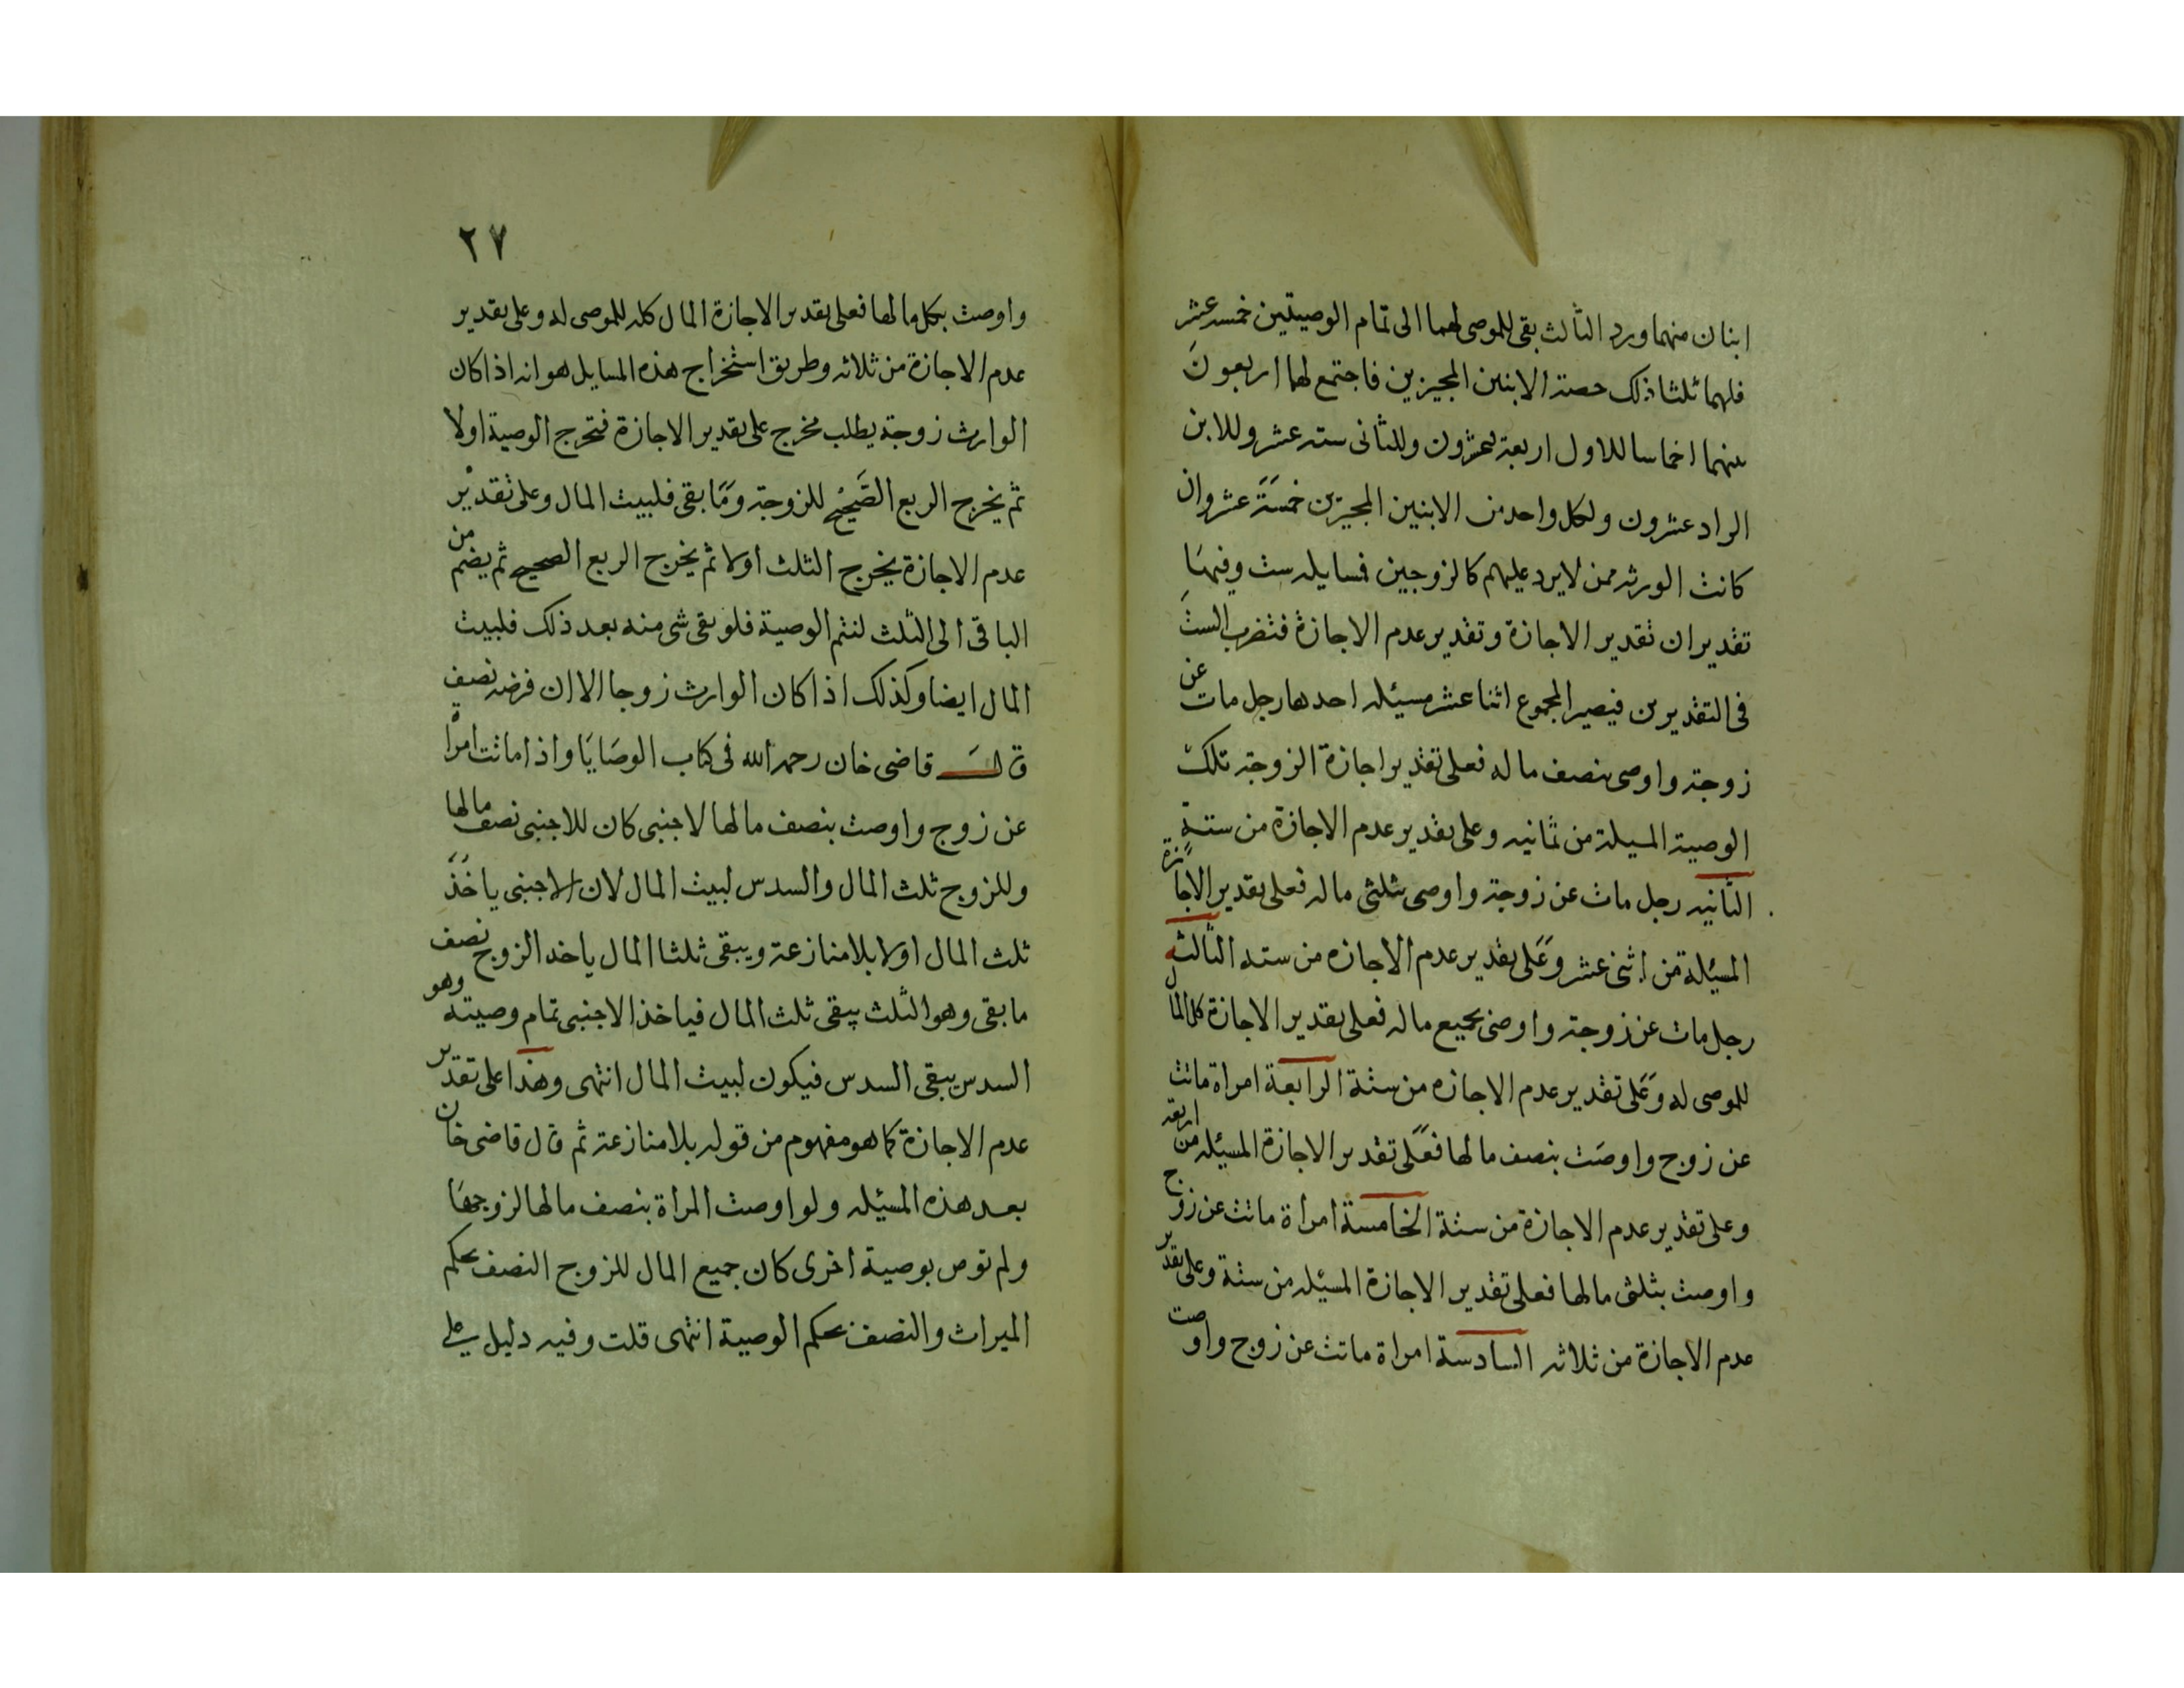 ابنان منهما ورد الثالث بقى للموصى لهما الى تمام الوصيتين خمسه عشر
فلهما ثلثا ذلك حصة الابنين المجيزين فاجتمع لهما اربعون
بينهما اخماسا للاول اربعة وعشرون وللثانى سته عشر وللابن
الراد عشرون ولكل واحد من الابنين المجيزين خمسة عشر وان
كانت الورثه ممن لايرد عليهم كالزوجين فمسايله ست وفيها
تقديران تقدير الاجازة وتقدير عدم الاجازة فتضرب الست
فى التقديرين فيصير المجموع اثنا عشر مسئله احدها رجل مات عن
زوجة واوصى بنصف ماله فعلى تقدير اجازة الزوجة تلك
الوصية المسيلة من ثمانيه وعلى تقدير عدم الاجازة من ستة
الثانيه رجل مات عن زوجة واوصى بثلثى ماله فعلى تقدير الاجازة
المسئلة من اثنى عشر وعلى تقدير عدم الاجازه من سته الثالثه
رجل مات عن زوجة واوصى بجميع ماله فعلى تقدير الاجازة كل المال
للموصى له وعلى تقدير عدم الاجازه من ستة الرابعة امراة ماتت
عن زوج واوصت بنصف مالها فعلى تقدير الاجازة المسئله من اربعه
وعلى تقدير عدم الاجازة من ستة الخامسة امراة ماتت عن زوج
واوصت بثلثى مالها فعلى تقدير الاجازة المسئله من ستة وعلى تقدير
عدم الاجازة من ثلاثه السادسة امراة ماتت عن زوج واوصت
٢٧
واوصت بكل مالها فعلى تقدير الاجازة المال كله للموصى له وعلى تقدير
عدم الاجازة من ثلاثه وطريق استخراج هذه المسايل هو انه اذا كان
الوارث زوجة يطلب مخرج على تقدير الاجازة فتخرج الوصية اولا
ثم يخرج الربع الصحيح للزوجة وما بقى فلبيت المال وعلى تقدير
عدم الاجازة يخرج الثلث اولا ثم يخرج الربع الصحيح ثم يضم من
الباقى الى الثلث لتتم الوصية فلو بقى شى منه بعد ذلك فلبيت
المال ايضا وكذلك اذا كان الوارث زوجا الا ان فرضه نصف
قال قاضى خان رحمه الله فى كتاب الوصايا واذا ماتت امرأ
عن زوج واوصت بنصف مالها لاجنبى كان للاجنبى نصف مالها
وللزوج ثلث المال والسدس لبيت المال لان الاجنبى ياخذ
ثلث المال اولا بلا منازعة ويبقى ثلثا المال ياخد الزوج نصف
ما بقى وهو الثلث يبقى ثلث المال فياخذ الاجنبى تمام وصيته وهو
السدس يبقى السدس فيكون لبيت المال انتهى وهذا على تقدير
عدم الاجازة كما هو مفهوم من قوله بلا منازعة ثم قال قاضى خان
بعد هذه المسئله ولو اوصت المراة بنصف مالها لزوجها
ولم توص بوصية اخرى كان جميع المال للزوج النصف بحكم
الميراث والنصف بحكم الوصية انتهى قلت وفيه دليل على